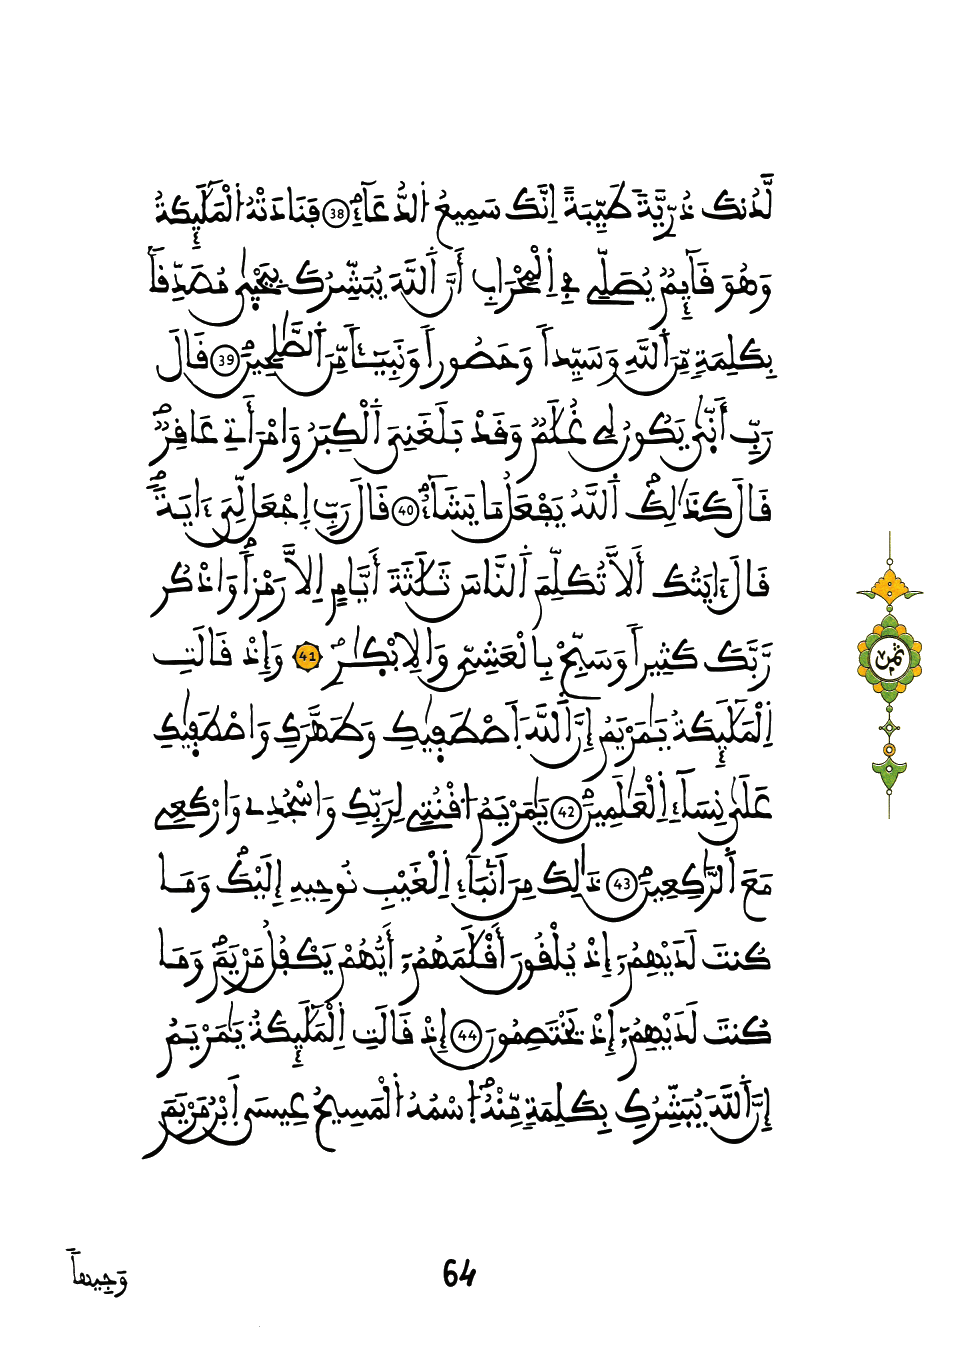 لَّدُنكَ ذُرِّيَّةً طَيِّبَةً اِنَّكَ سَمِيعُ اُ۬لدُّعَآءِۖ 38 فَنَادَتْهُ اُ۬لْمَلَٰٓئِكَةُ
وَهُوَ قَآئِمٌ يُصَلِّے فِے اِ۬لْمِحْرَابِ أَنَّ اَ۬للَّهَ يُبَشِّرُكَ بِيَحْيٰ۪ي مُصَدِّقاَۢ
بِكَلِمَةٍ مِّنَ اَ۬للَّهِ وَسَيِّداً وَحَصُوراً وَنَبِيٓـٔاً مِّنَ اَ۬لصَّٰلِحِينَۖ 39 قَالَ
رَبِّ أَنّ۪يٰ يَكُونُ لِے غُلَٰمٌ وَقَدْ بَلَغَنِيَ اَ۬لْكِبَرُ وَامْرَأَتِے عَاقِرٌۖ
قَالَ كَذَٰلِكَۖ اَ۬للَّهُ يَفْعَلُ مَا يَشَآءُۖ 40 قَالَ رَبِّ اِ۪جْعَل لِّيَ ءَايَةٗۖ
قَالَ ءَايَتُكَ أَلَّا تُكَلِّمَ اَ۬لنَّاسَ ثَلَٰثَةَ أَيَّامٍ اِلَّا رَمْزاًۖ وَاذْكُر
رَّبَّكَ كَثِيراً وَسَبِّحْ بِالْعَشِيِّ وَالِابْكٰ۪رِۖ 41 وَإِذْ قَالَتِ
اِ۬لْمَلَٰٓئِكَةُ يَٰمَرْيَمُ إِنَّ اَ۬للَّهَ اَ۪صْطَف۪يٰكِ وَطَهَّرَكِ وَاصْطَف۪يٰكِ
عَلَيٰ نِسَآءِ اِ۬لْعَٰلَمِينَۖ 42 يَٰمَرْيَمُ اُ۟قْنُتِے لِرَبِّكِ وَاسْجُدِے وَارْكَعِے
مَعَ اَ۬لرَّٰكِعِينَۖ 43 ذَٰلِكَ مِنَ اَنۢبَآءِ اِ۬لْغَيْبِ نُوحِيهِ إِلَيْكَۖ وَمَا
كُنتَ لَدَيْهِمُۥٓ إِذْ يُلْقُونَ أَقْلَٰمَهُمُۥٓ أَيُّهُمْ يَكْفُلُ مَرْيَمَۖ وَمَا
كُنتَ لَدَيْهِمُۥٓ إِذْ يَخْتَصِمُونَ 44 إِذْ قَالَتِ اِ۬لْمَلَٰٓئِكَةُ يَٰمَرْيَمُ
إِنَّ اَ۬للَّهَ يُبَشِّرُكِ بِكَلِمَةٍ مِّنْهُۖ اُ۪سْمُهُ اُ۬لْمَسِيحُ عِيسَي اَ۪بْنُ مَرْيَمَ
ثمن
وَجِيهاً
64